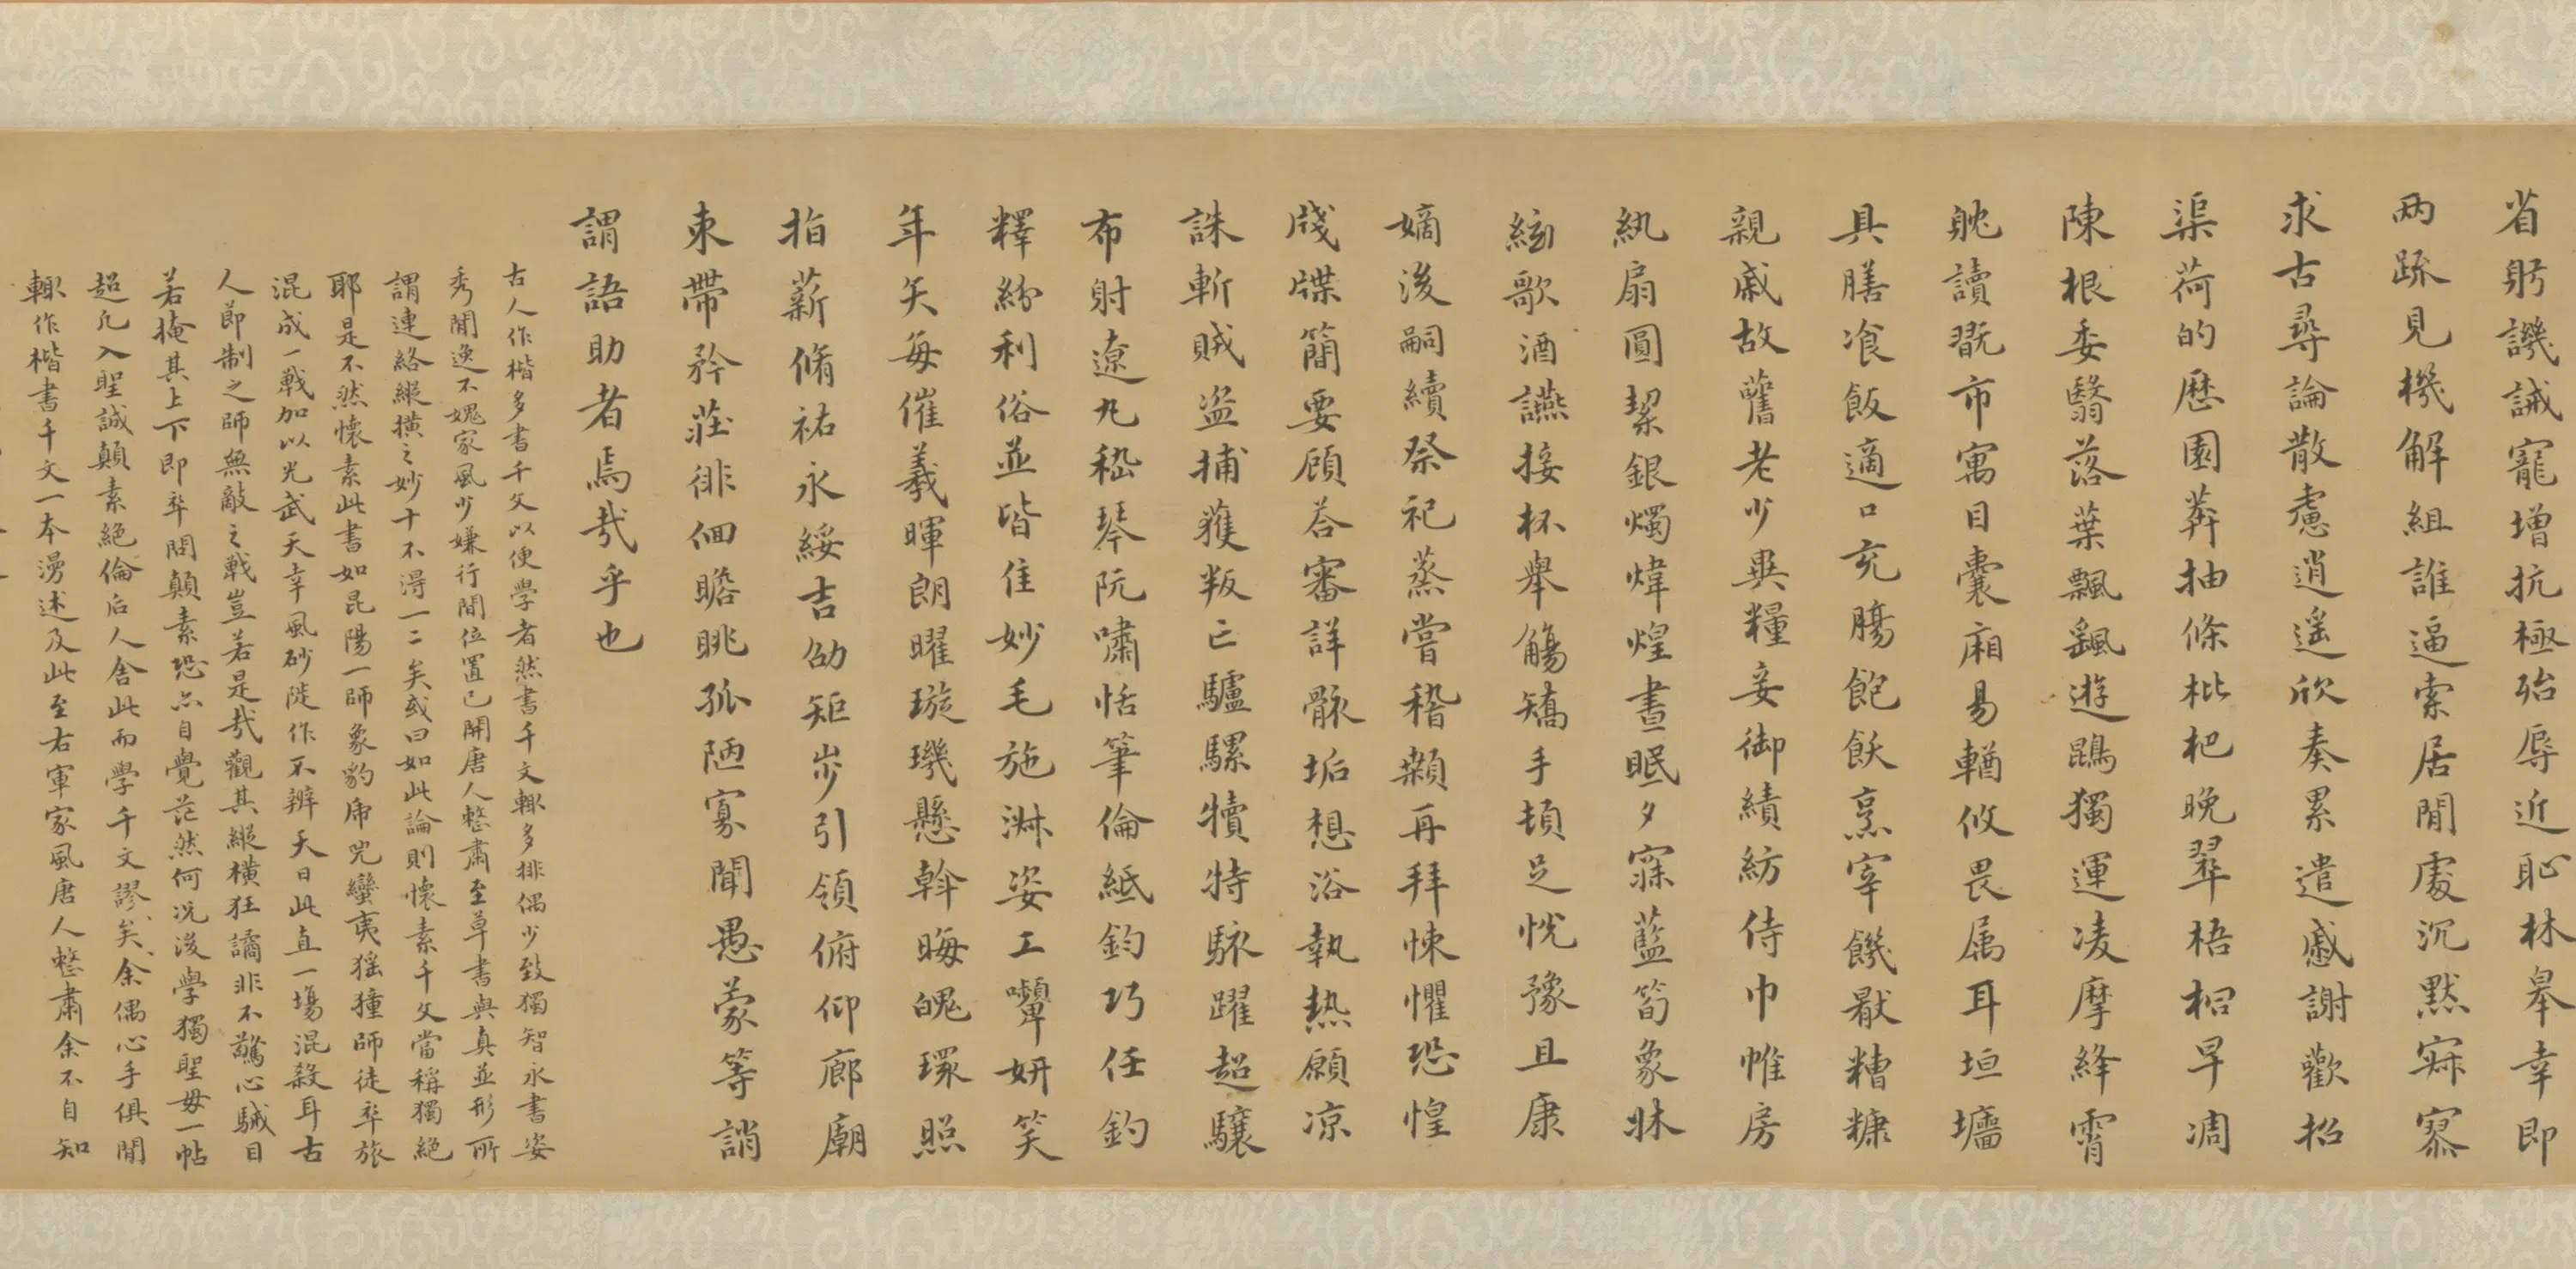 省躬譏誡寵增抗極殆辱近恥林皋幸即
两疏見機解組誰逼索居閒處沉默寂寥
求古尋論散慮逍遥欣奏累遣慼謝歡招
渠荷的歷園莽抽條枇杷晚翠梧桐早凋
陳根委翳落葉飄颻遊鵾獨運凌摩絳霄
躭讀翫市寓目囊廂易輶攸畏属耳垣墻
具膳飡飯適口充腸飽飫烹宰饑厭糟糠
親戚故舊老少異糧妾御績紡侍巾帷房
紈扇圓潔銀燭煒煌晝眠夕寐藍筍象牀
絃歌酒讌接杯舉觴矯手頓足悅豫且康
嫡後嗣續祭祀蒸嘗稽顙再拜悚懼恐惶
牋牒簡要顧荅審詳骸垢想浴執熱願凉
誅斬賊盗捕獲叛亡驢騾犢特駭躍超驤
布射遼丸嵇琴阮嘯恬筆倫紙鈞巧任釣
釋紛利俗並皆佳妙毛施淑姿工顰妍笑
年矢每催羲暉朗曜璇璣懸斡晦魄環照
指薪脩祐永綏吉劭矩步引領俯仰廊廟
束帶矜莊徘徊瞻眺孤陋寡聞愚蒙等誚
謂語助者焉哉乎也
古人作楷多書千文以便學者然書千文輙多排偶少致獨智永書姿
秀閒逸不媿家風少嫌行間位置已開唐人整肅至草書與真並形所
謂連絡縱横之妙十不得一二矣或曰如此論則懷素千文當稱獨絕
耶是不然懷素此書如昆陽一師象豹虎兕蠻夷猺獞師徒率旅
混成一戰加以光武天幸風砂陡作不辨天日此直一塲混殺耳古
人節制之師無敵之戰豈若是哉觀其縱横狂譎非不驚心駴目
若掩其上下即卒問顛素恐亦自覺茫然何况後學獨聖母一帖
超凡入聖誠顛素絕倫后人舍此而學千文謬矣余偶心手俱閒
輙作楷書千文一本漫述及此至右軍家風唐人整肅余不自知